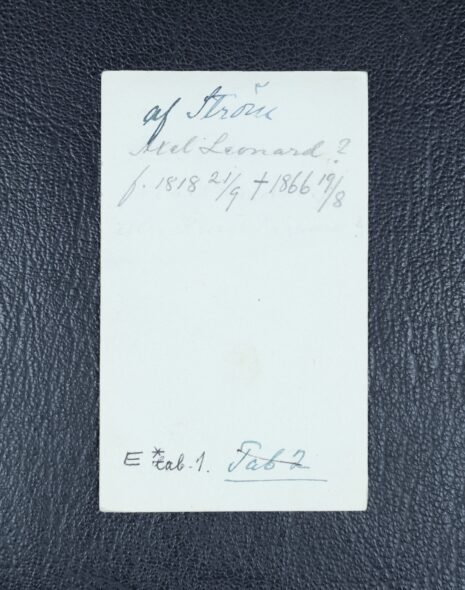 af Ström
Axel Leonard?
f. 1818 21/9 † 1866 19/8
E *tab. 1. Tab 2